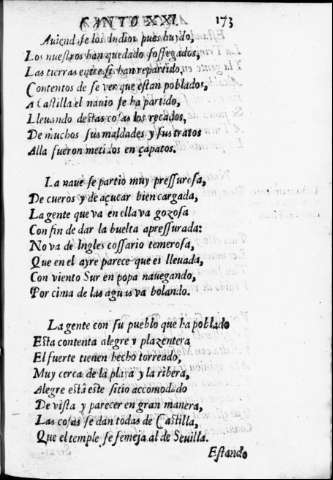 CANTO XXI. 173
Auiendse los Indios pues huydo,
Los nuestros han quedado sossegados,
Las tierras entre si han repartido,
Contentos de se ver que estan poblados,
A Castilla el nauio se ha partido,
Lleuando destas cosas los recados,
De muchos sus maldades y sus tratos
Alla fueron metidos en çapatos.
La naue se partio muy pressurosa,
De cueros y de açucar bien cargada,
La gente que va en ella va gozosa
Con fin de dar la buelta apressurada:
No va de Ingles cossario temerosa,
Que en el ayre parece que es lleuada,
Con viento Sur en popa nauegando,
Por cima de las aguas va bolando.
La gente con su pueblo que ha poblado
Esta contenta alegre y plazentera
El fuerte tienen hecho torreado,
Muy cerca de la plaça y la ribera,
Alegre està este sitio acomodado
De vista y parecer en gran manera,
Las cosas se dan todas de Castilla,
Que el temple se semeja al de Seuilla.
Estando